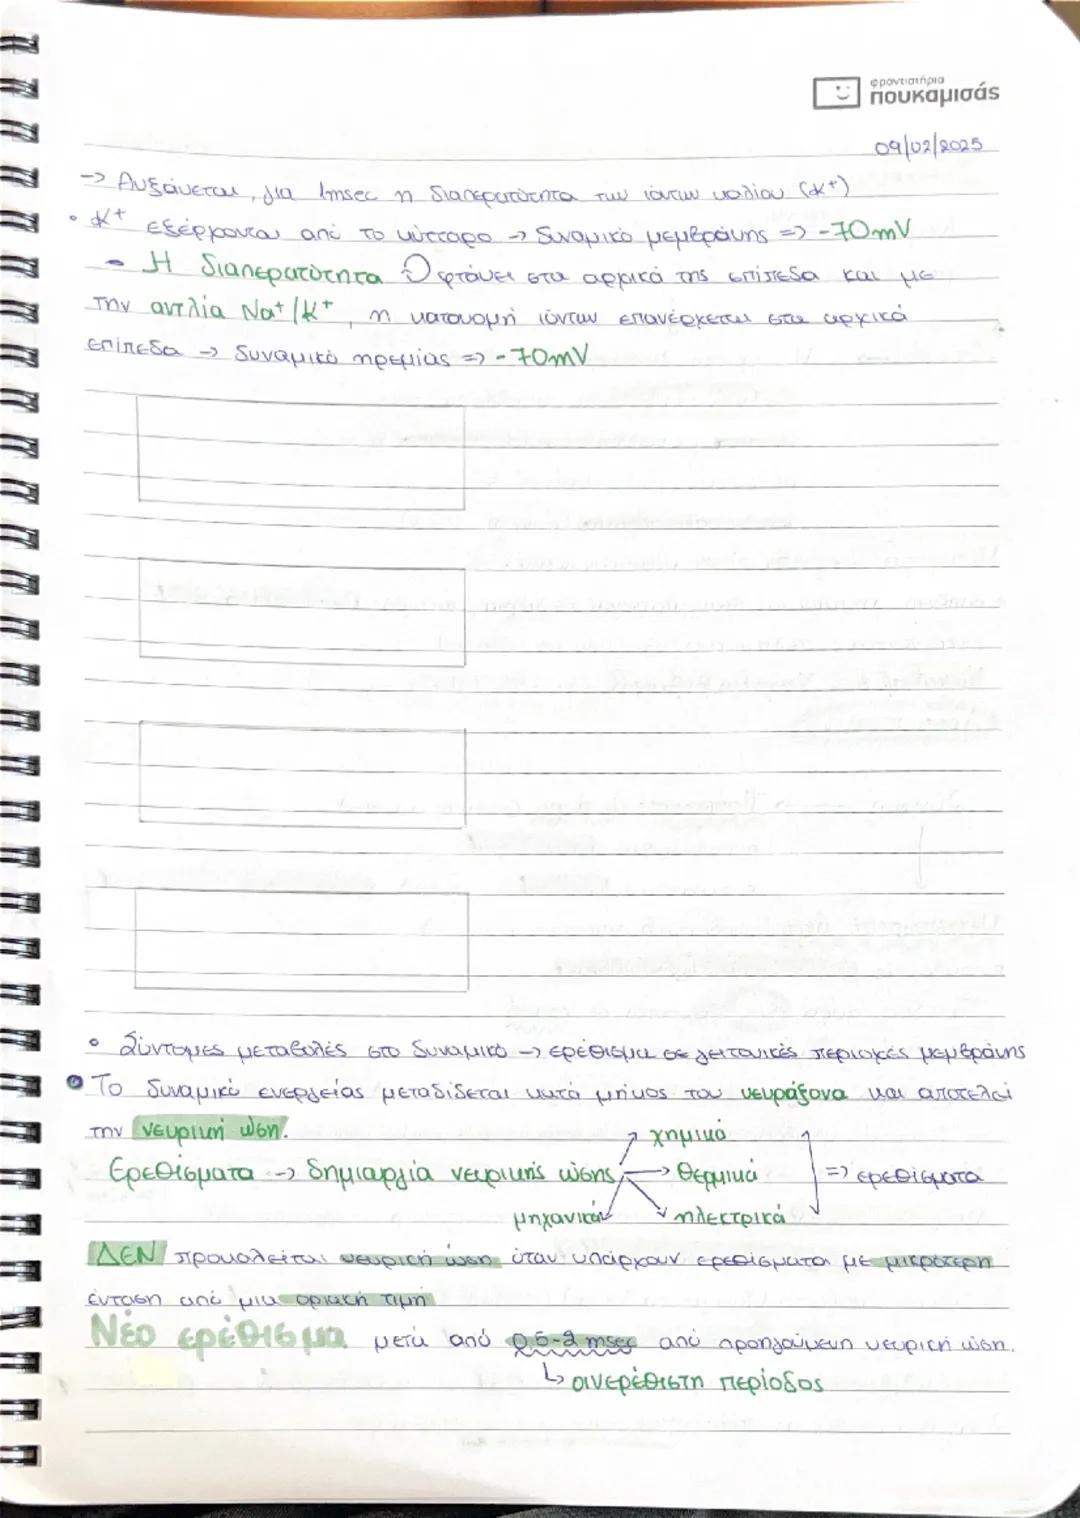 φροντιστήρια
πουκαμισάς
09/02/2025
-> Αυξάνεται, για 1msec η διαπερατότητα των ιόντων καλίου (K+)
• K+ εξέρχονται από το κύτταρο -> δυναμικό μεμβράνης => -70mV
- Η διαπερατότητα φτάνει στα αρχικά της επίπεδα και με
την αντλία Na+/K+, η κατανομή ιόντων επανέρχεται στα αρχικά
επίπεδα -> δυναμικό ηρεμίας => -70mV
• Σύντομες μεταβολές στο δυναμικό -> ερέθισμα σε γειτονικές περιοχές μεμβράνης
• Το δυναμικό ενεργείας μεταδίδεται κατά μήκος του νευράξονα και αποτελεί
την νευρική ώση.
χημικά
Ερεθίσματα -> δημιουργία νευρικής ώσης -> θερμικά => ερεθίσματα
μηχανικά ηλεκτρικά
ΔΕΝ προκαλείται νευρική ώση όταν υπάρχουν ερεθίσματα με μικρότερη
ένταση από μια οριακή τιμή
Νέο ερέθισμα μετά από 0,5-2 msec από προηγούμενη νευρική ώση.
περίοδος